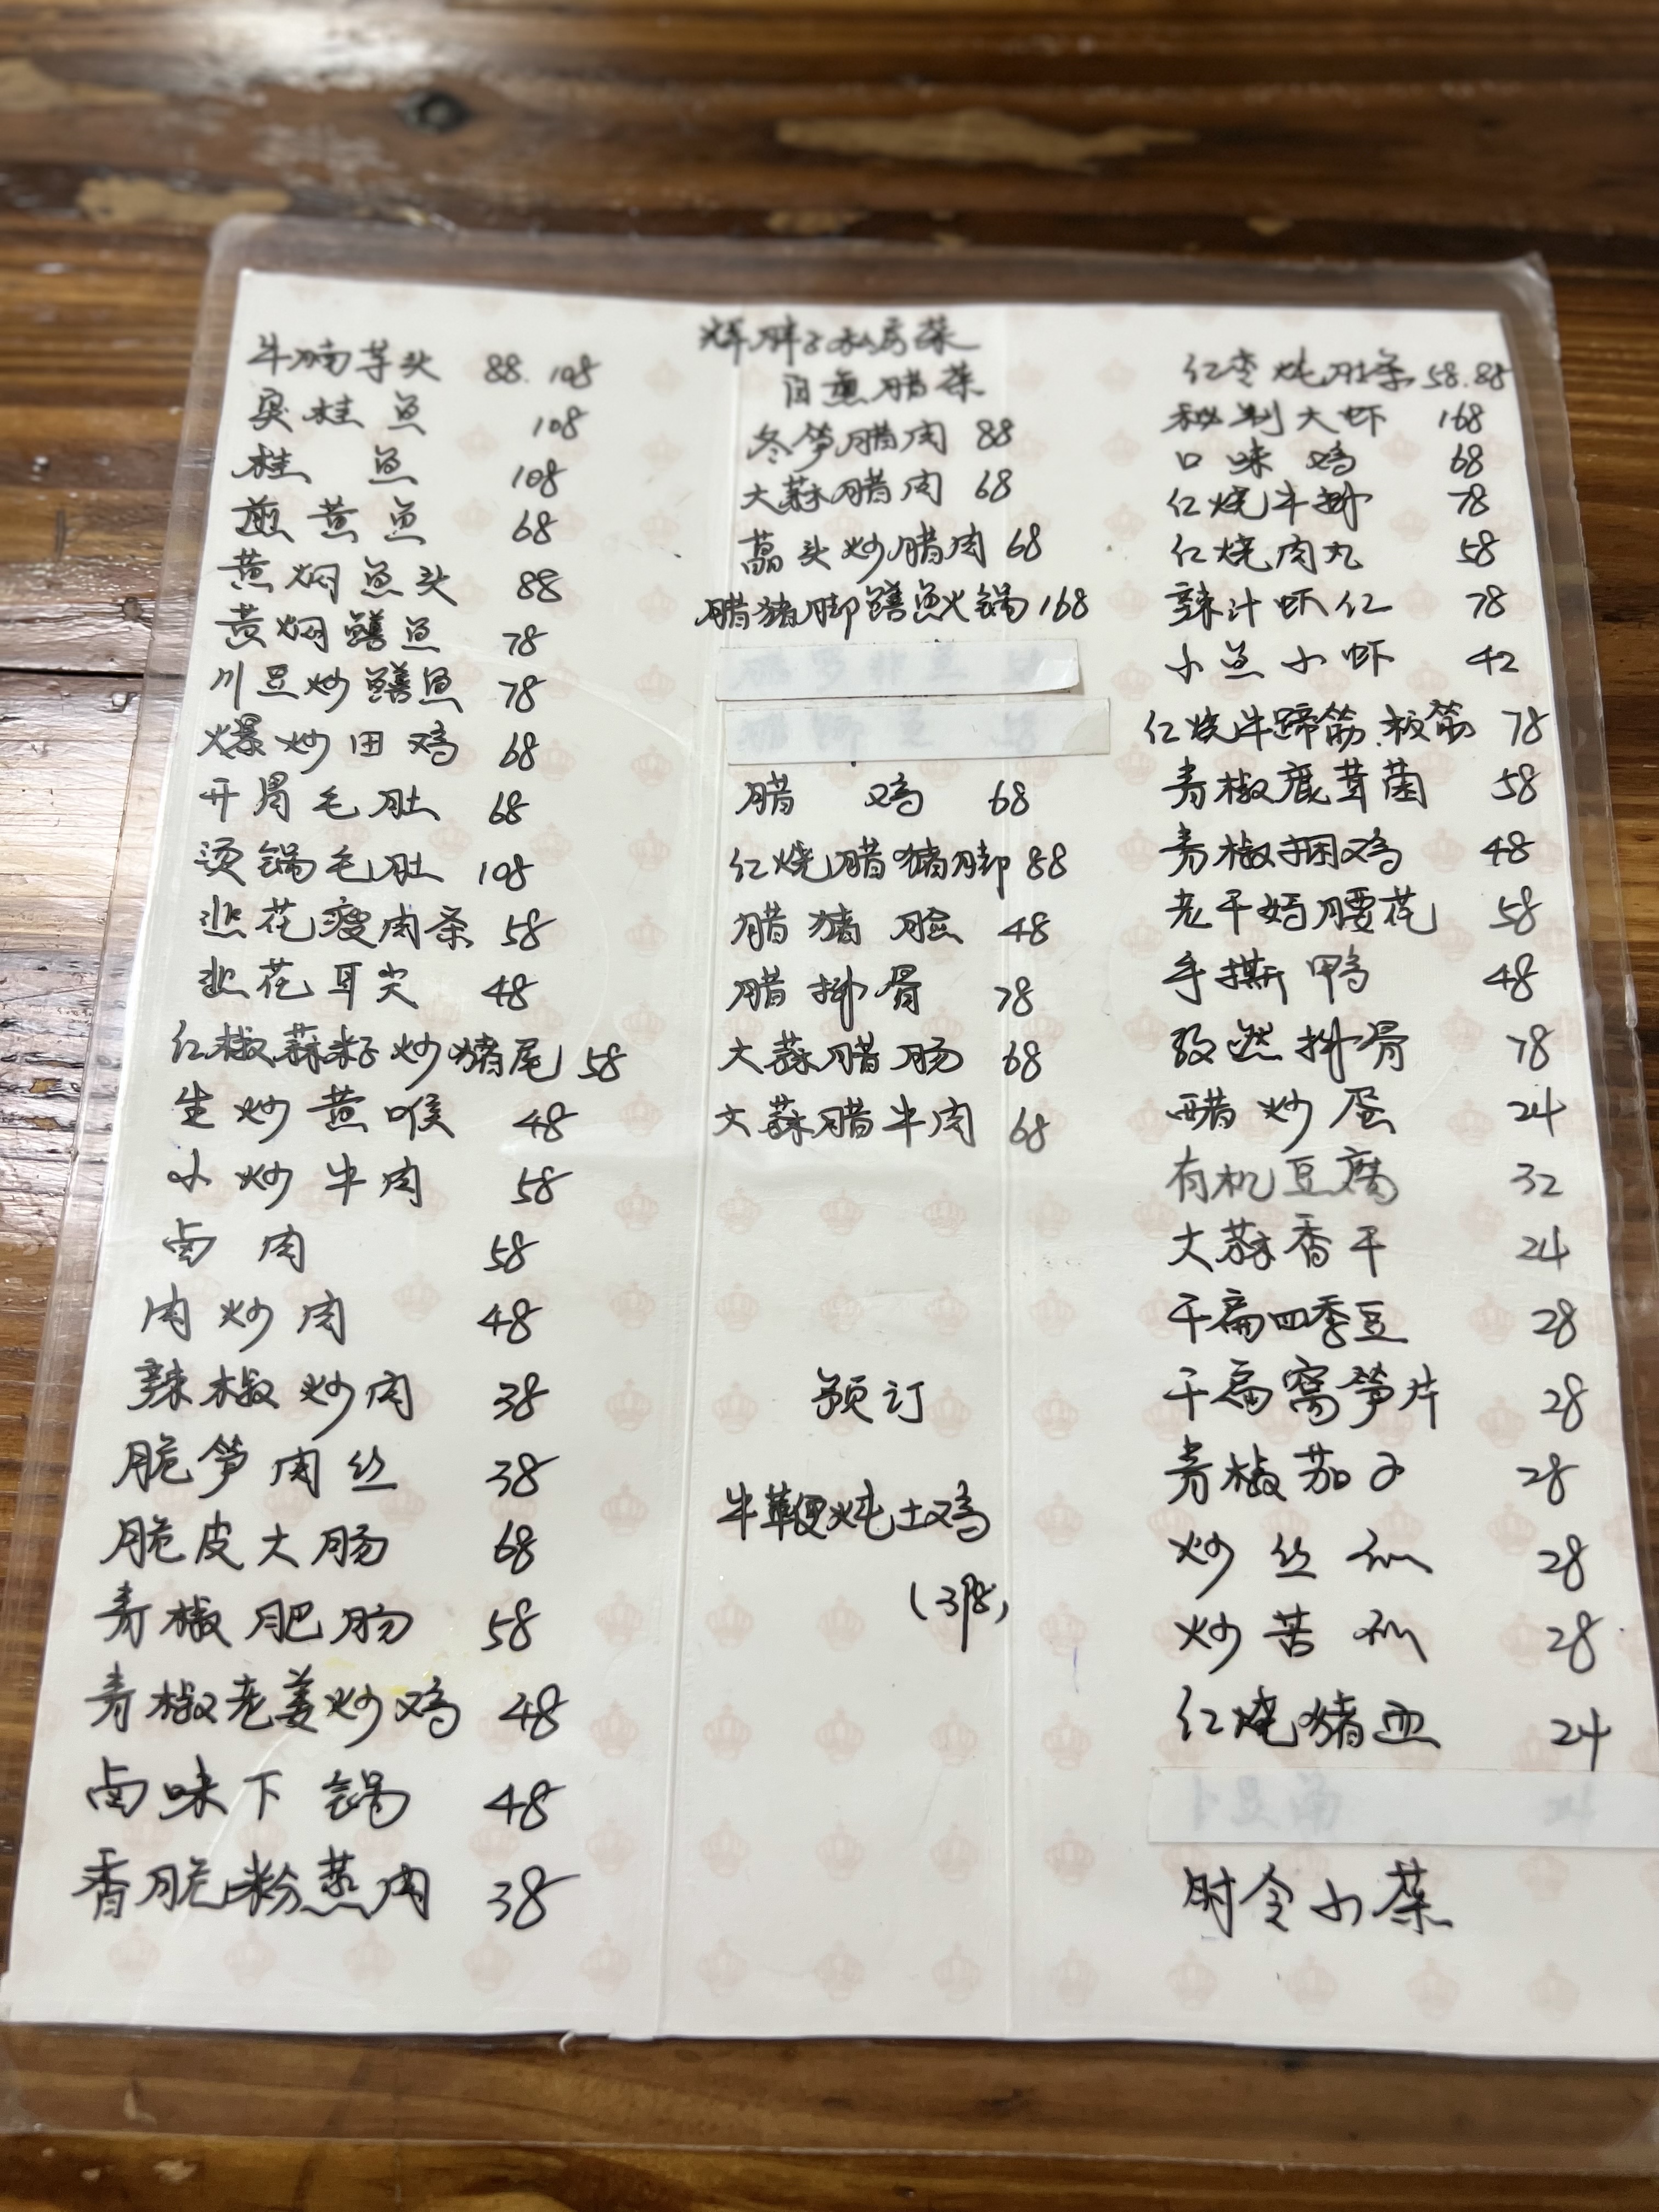 牛腩芋头 88.108
臭桂鱼 108
桂鱼 108
煎黄鱼 68
黄焖鱼头 88
黄焖鳝鱼 78
川豆炒鳝鱼 78
爆炒田鸡 68
开胃毛肚 68
烫锅毛肚 108
韭花瘦肉条 58
韭花耳尖 48
红椒蒜籽炒猪尾 58
生炒黄喉 48
小炒牛肉 58
卤肉 58
肉炒肉 48
辣椒炒肉 38
脆笋肉丝 38
脆皮大肠 68
青椒肥肠 58
青椒老姜炒鸡 48
卤味下锅 48
香脆粉蒸肉 38
辉胖子私房菜
自熏腊菜
冬笋腊肉 88
大蒜腊肉 68
藠头炒腊肉 68
腊猪脚鳝鱼火锅 168
腊鸡 68
红烧腊猪脚 88
腊猪脸 48
腊排骨 78
大蒜腊肠 68
大蒜腊牛肉 68
预订
牛鞭炖土鸡
(398)
红枣炖肚条 58.88
秘制大虾 168
口味鸡 68
红烧牛排 78
红烧肉丸 58
辣汁虾仁 78
小鱼小虾 42
红烧牛蹄筋.板筋 78
青椒鹿茸菌 58
青椒捆鸡 48
老干妈腰花 58
手撕鸭 48
孜然排骨 78
醋炒蛋 24
有机豆腐 32
大蒜香干 24
干扁四季豆 28
干扁窝笋片 28
青椒茄子 28
炒丝瓜 28
炒苦瓜 28
红烧猪血 24
时令小菜